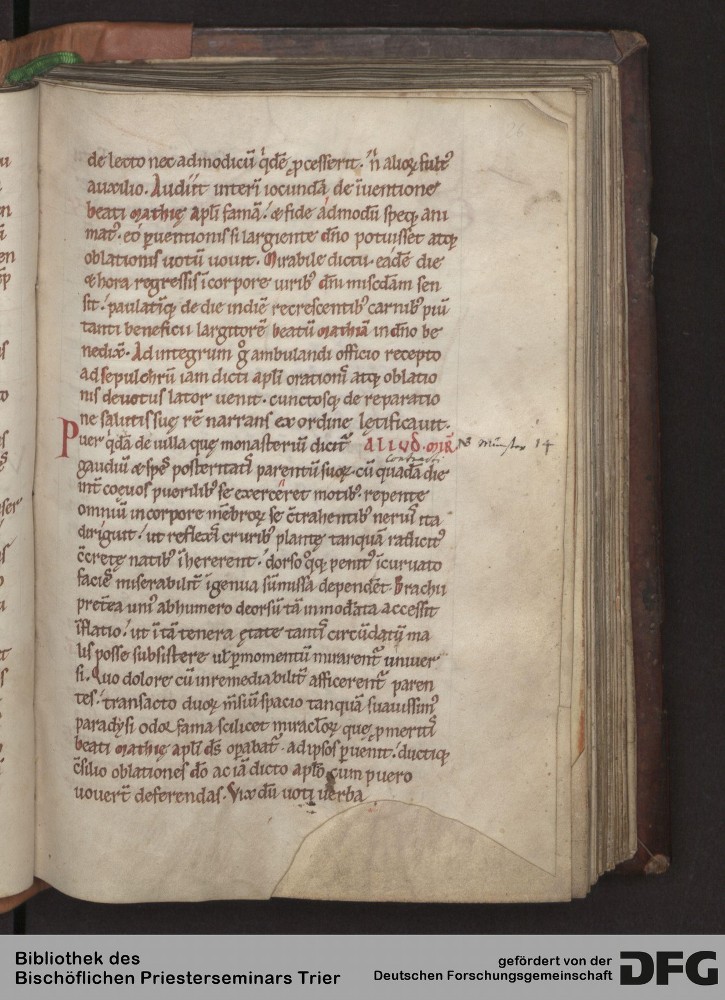 26
de lecto nec ad modicū q̇dē ꝓcesserit · n̄ alioꝝ fult᷒
auxilio. Audiit interī iocundā de īuentione
beati mathię apl̄i famā. ⁊ fide admodū speq; ani
mat᷒. eo ꝑuentionis si largiente dn̄o potuisset atq;
oblationis uotū uouit. Mirabile dictu. eadē die
⁊ hora regressis ī corpore uirib᷒ dn̄i misc̄dam sen
sit. paulatīq; de die in diē recrescentib᷒ carnib᷒ piū
tanti beneficii largitorē beatū mathiā in dn̄o be
nedix̄. Ad integrum g̊ ambulandi officio recepto
ad sepulchrū iam dicti apl̄i orationis atq; oblatio
nis deuotus lator uenit. cunctosq; de reparatio
ne salutis suę rē narrans ex ordine lętificauit.
Puer q̇dā de uilla quę monasteriū dicit᷑ ALIUD. MIR̄ Münster 14
contracti
gaudiū ⁊ spes posteritatis parentū suoꝝ. cū quadā die
int̄ coęuos puerilib᷒ se exerceret motib᷒. repente
omniū in corpore mēbroꝝ se c̄trahentib᷒ neruis ita
diriguit. ut reflexis crurib᷒ plantę tanquā radicit᷒
c̄cretę natib᷒ īhererent. dorso q̊q; penit᷒ īcuruato
facies miserabilit̄ ī genua sūmissa dependēt. Brachii
pret̄ea uni᷒ ab humero deorsū tā inmod̄ata accessit
īflatio. ut ī tā tenera ętate tantis circūdatū ma
lis posse subsistere ul̄ ꝑ momentū mirarent᷑ uniuer
si. Quo dolore cū inremediabilit̄ afficerent᷑ paren
tes. transacto duoꝝ m̄siū spacio tanquā suauissim᷒
paradysi odor fama scilicet miraclōꝝ quę ꝑ meritis
beati mathię apl̄i ds̄ opabat᷑. ad ipsos ꝑuenit. ductiq;
c̄silio oblationes dō ac iā dicto apl̄o cum puero
uouert̄ deferendas. Vix dū uoti uerba
Bibliothek des
Bischöflichen Priesterseminars Trier
gefördert von der
Deutschen Forschungsgemeinschaft
DFG